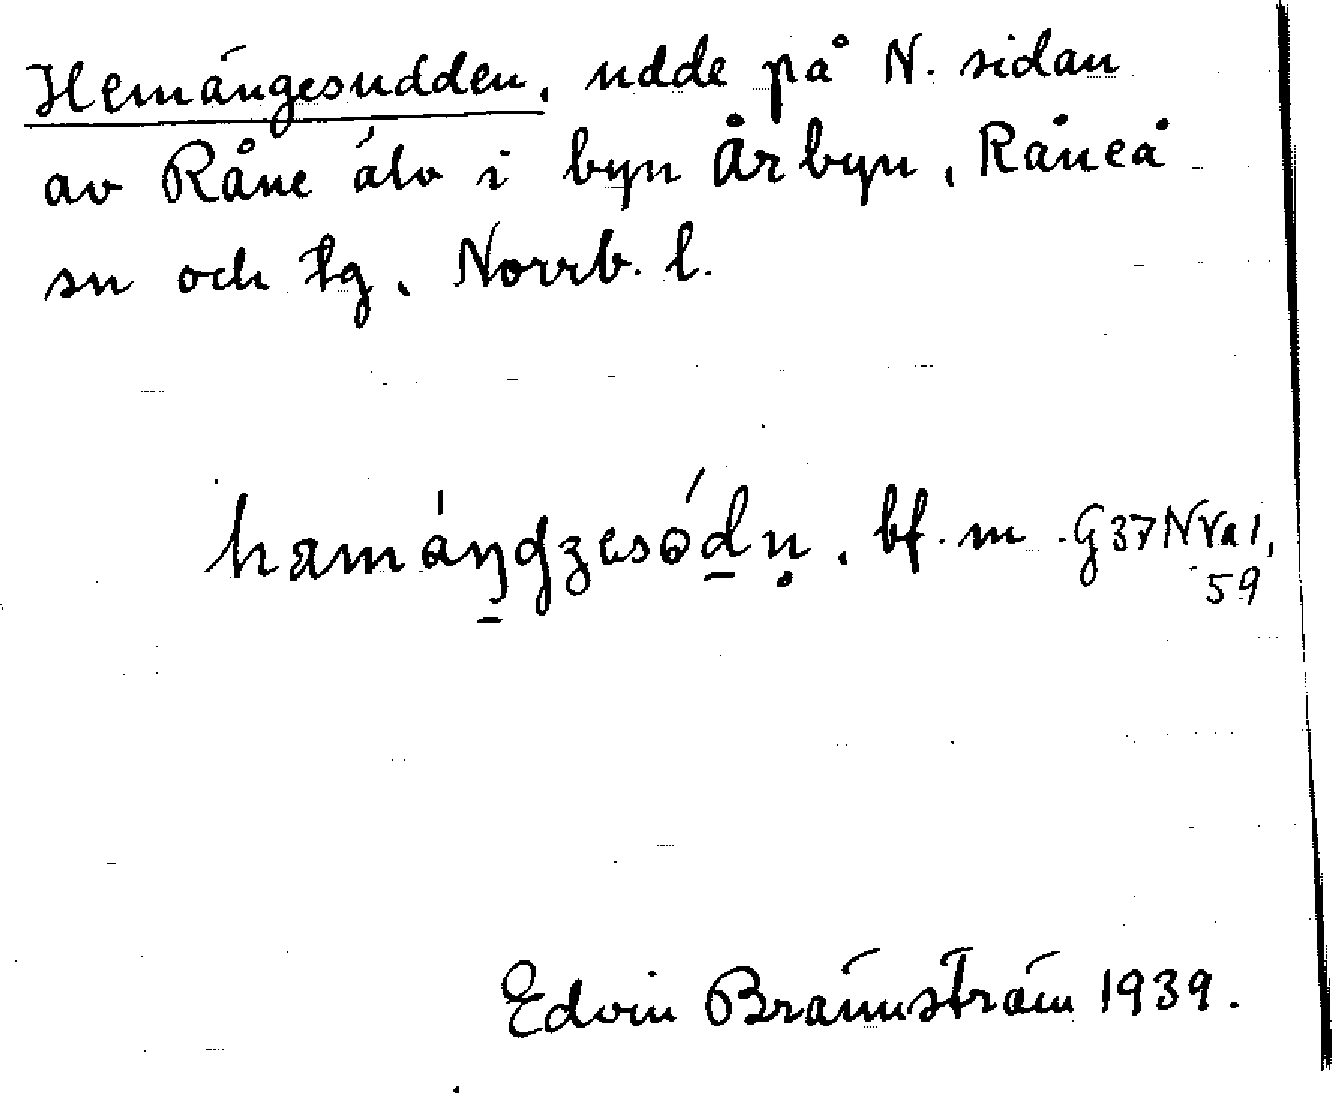 Hemängesudden, udde på N. sidan
av Råne älv i byn Årbyn, Råneå
sn och tg, Norrb. l.
bf. m. G37NVa1,
59
Edvin Brännström 1939.